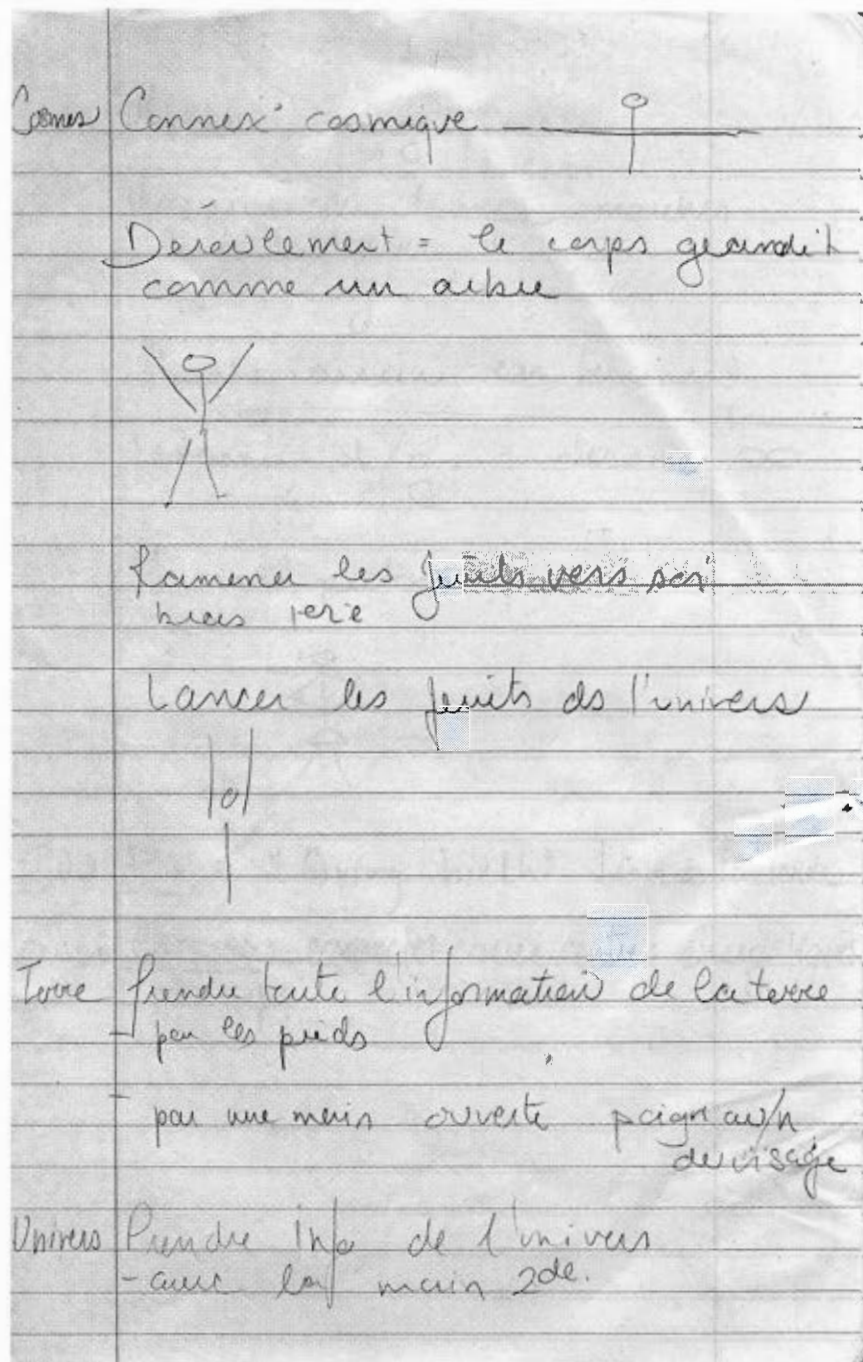 Cosmos Connex° cosmique
Déroulement = le corps grandit
comme un arbre
Ramener les fruits vers soi
bras 1ere
Lancer les fruits ds l'univers
Terre Prendre toute l'information de la terre
- par les pieds
- par une main ouverte poignet
du visage
Univers Prendre Info de l'univers
- avec la main 2de.